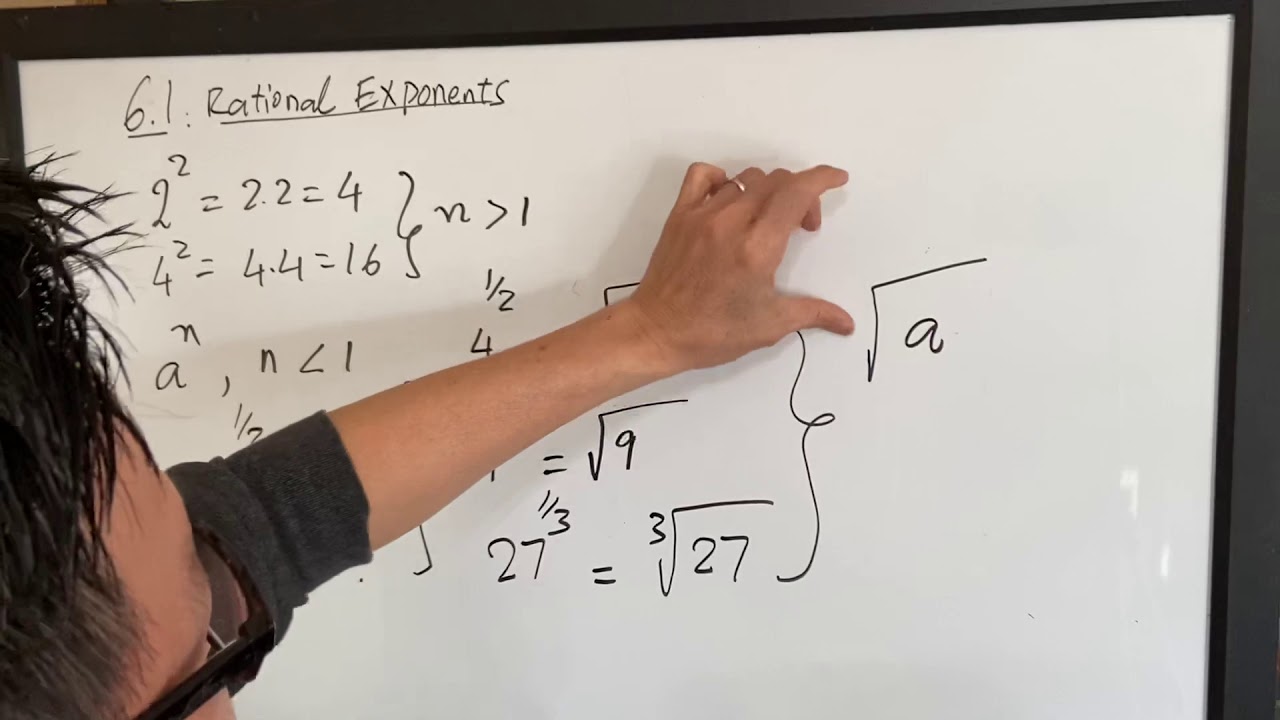 6.1: Rational Exponents
2² = 2.2 = 4
4² = 4.4 = 16
n > 1
aⁿ, n < 1
1/2
4^1/2
= √9
27^1/3 = ³√27
√a